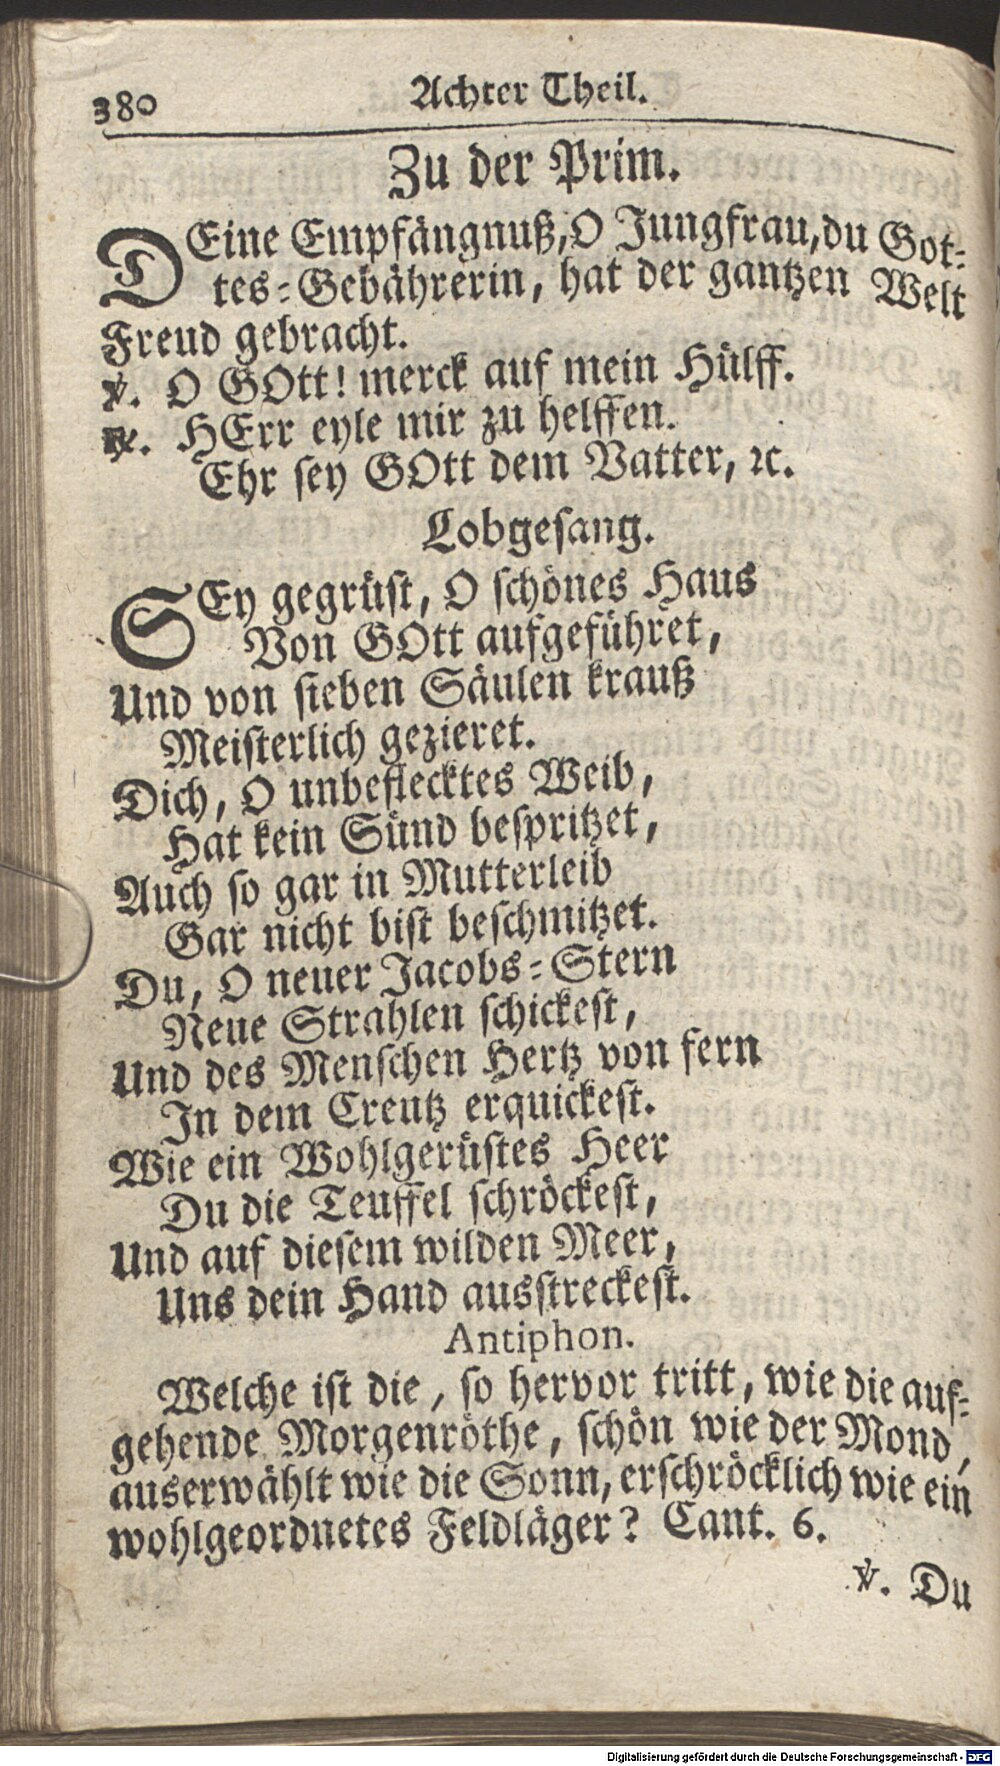 380
Achter Theil.
Zu der Prim.
DEine Empfängnuß, O Jungfrau, du Got⸗
tes⸗Gebährerin, hat der gantzen Welt
Freud gebracht.
℣. O GOtt! merck auf mein Hülff.
℟. HErr eyle mir zu helffen.
Ehr sey GOtt dem Vatter, ꝛc.
Lobgesang.
SEy gegrüst, O schönes Haus
Von GOtt aufgeführet,
Und von sieben Säulen krauß
Meisterlich gezieret.
Dich, O unbeflecktes Weib,
Hat kein Sünd bespritzet,
Auch so gar in Mutterleib
Gar nicht bist beschmitzet.
Du, O neuer Jacobs⸗Stern
Neue Strahlen schickest,
Und des Menschen Hertz von fern
In dem Creutz erquickest.
Wie ein Wohlgerüstes Heer
Du die Teuffel schröckest,
Und auf diesem wilden Meer,
Uns dein Hand ausstreckest.
Antiphon.
Welche ist die, so hervor tritt, wie die auf⸗
gehende Morgenröthe, schön wie der Mond,
auserwählt wie die Sonn, erschröcklich wie ein
wohlgeordnetes Feldläger? Cant. 6.
℣. Du
Digitalisierung gefördert durch die Deutsche Forschungsgemeinschaft - DFG